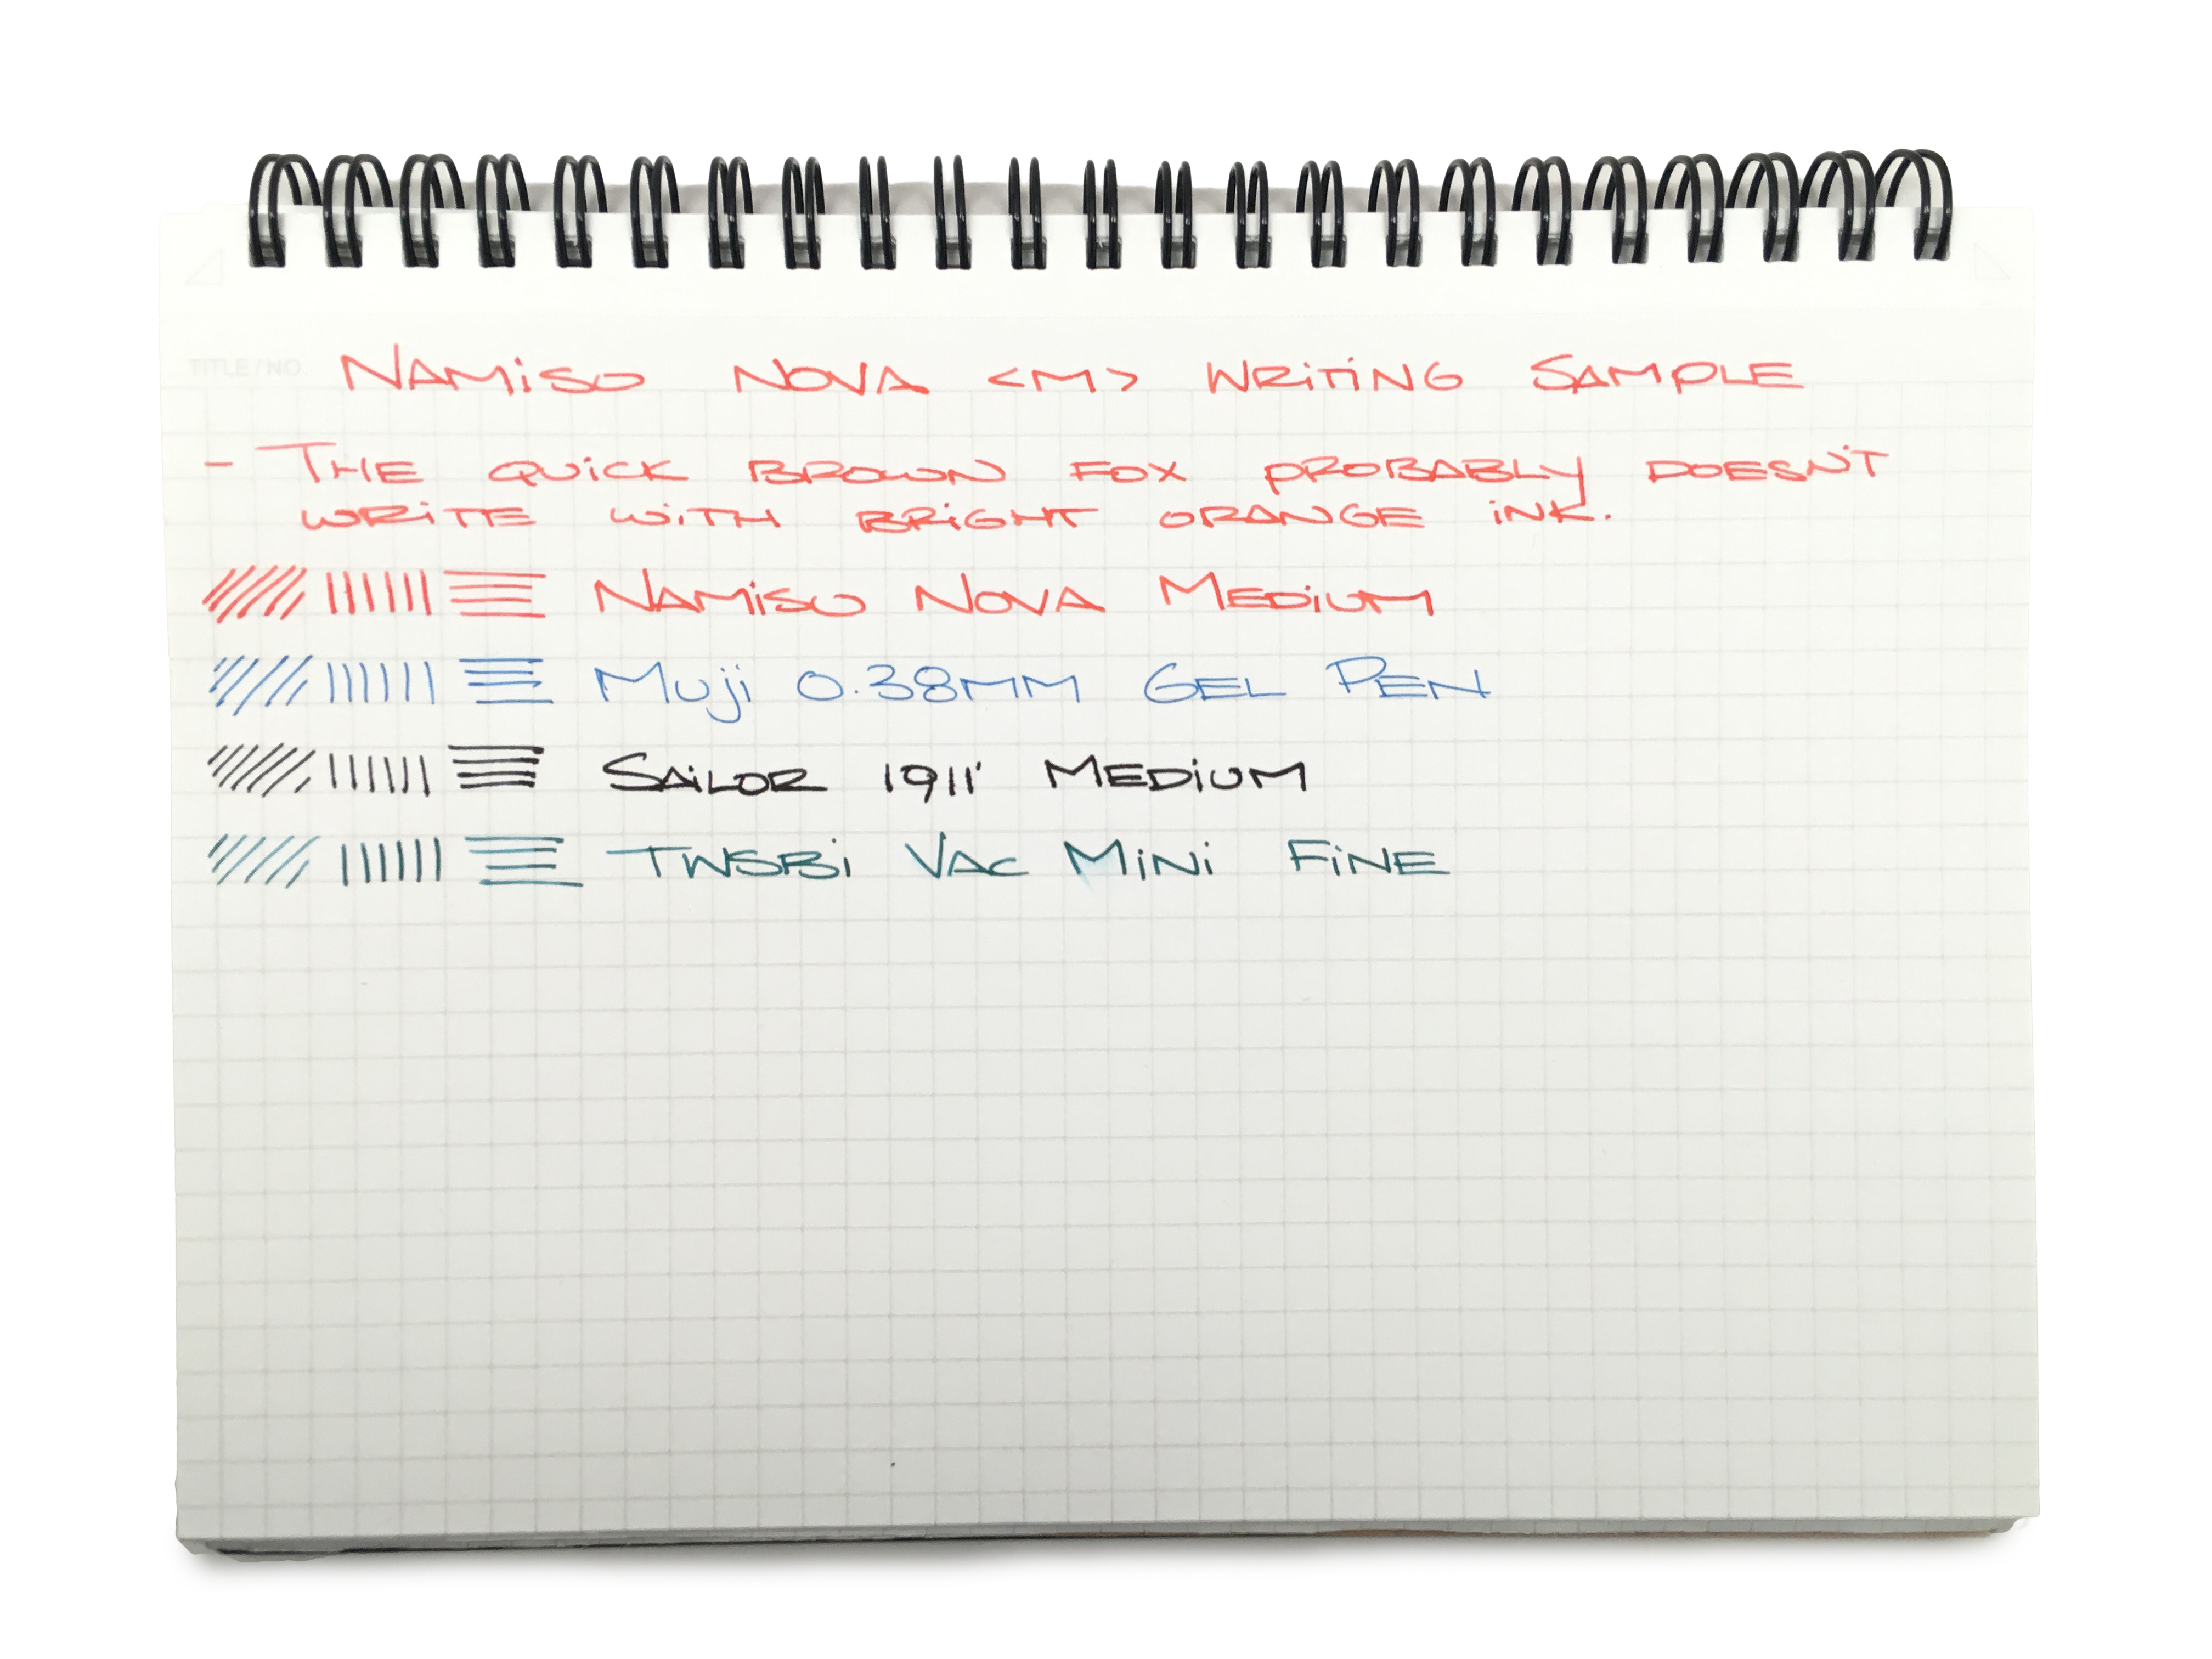 TITLE / NO.
NAMiSO NOVA <M> WRiTiNG SAMPLE
- THE QUiCK BROWN FOX PROBABLY DOESN'T
WRiTE WiTH BRiGHT ORANGE iNK.
NAMiSO NOVA MEDiUM
MUji 0.38MM GEL PEN
SAiLOR 1911 MEDiUM
TWSBi VAC MiNi FiNE